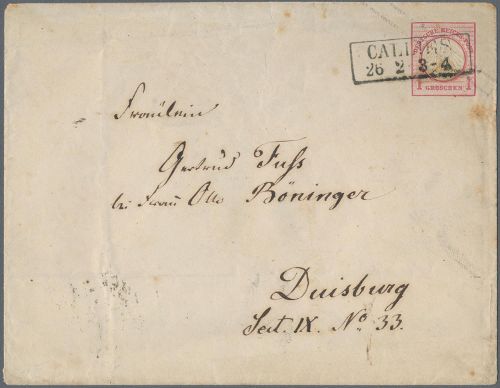 CALIES
26 2 3-4
DEUTSCHE REICHS-POST
1 GROSCHEN 1
Fräulein
Gertrud Fuss
bei Frau Otto Böninger
Duisburg
Sect. IX. No. 33.